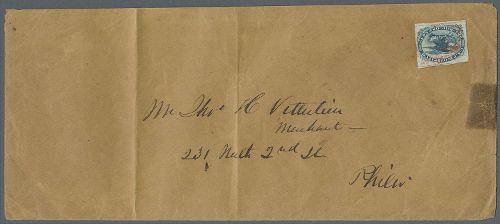 Mr Thos H Vetterlein
Merchant
231 North 2nd St
Phila